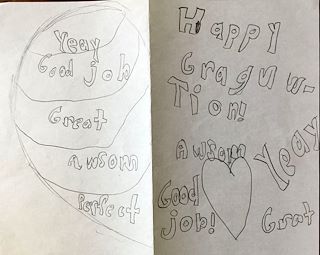 Yeay
Good job
Great
awsom
Perfect
Happy
Graguw-
Tion!
Awsom
Yeay
Good
job!
Grat